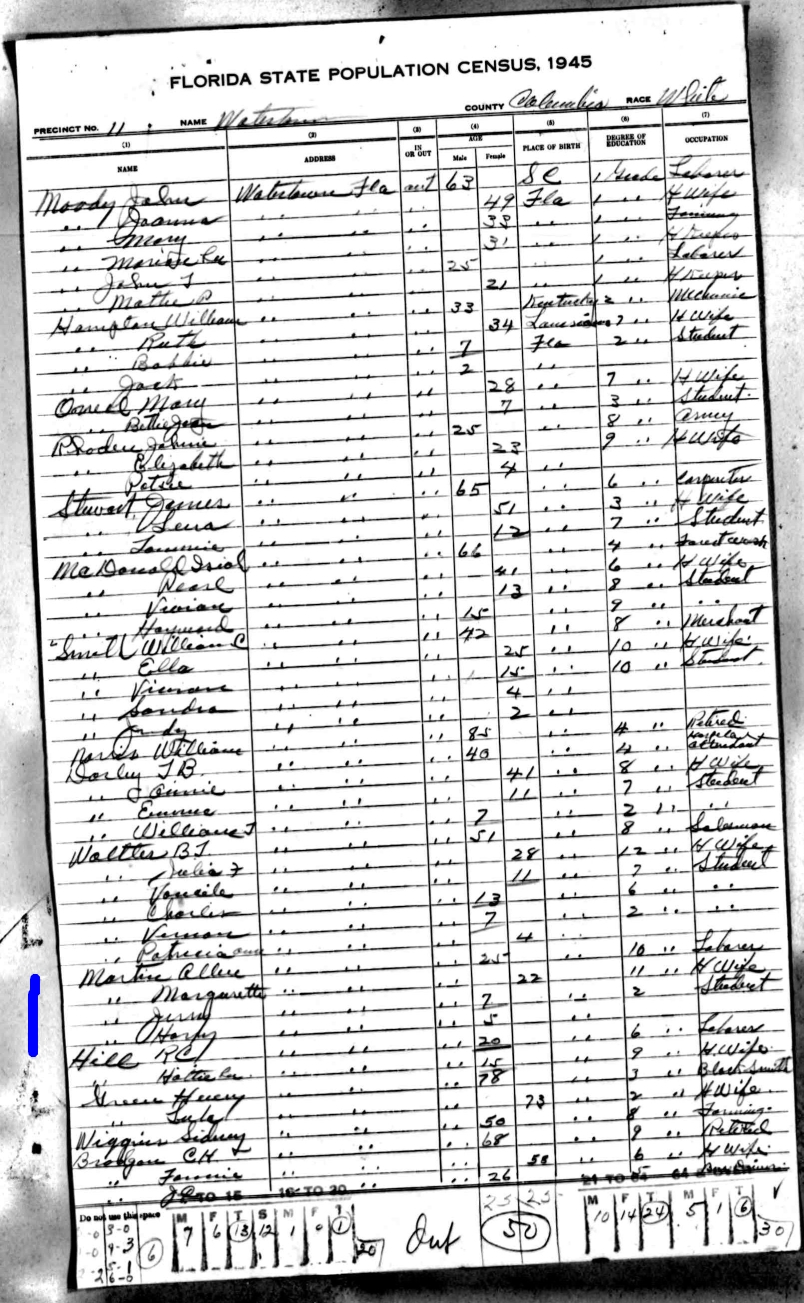 FLORIDA STATE POPULATION CENSUS, 1945
PRECINCT NO. 11 NAME Watertown COUNTY Columbia RACE White
(1) (2) (3) (4) (5) (6) (7)
NAME ADDRESS IN OR OUT AGE Male Female PLACE OF BIRTH DEGREE OF EDUCATION OCCUPATION
Moody John Watertown Fla out 63 SC 1 Grade Laborer
" Joanna " " " 49 Fla 1 " H Wife
" Mary " " " 33 " " 1 " Farming
" " " " 31 " " 1 " H Keeper
" John T " " " 25 " " 1 " Laborer
" " " " 21 " " 1 " H Keeper
Hampton William " " " 33 Kentucky 2 " Mechanic
" Ruth " " " 34 7 " H Wife
" Bobbie " " " 7 Fla 2 " Student
" Jack " " " 2 " "
Mary " " " 28 " " 7 " H Wife
" Bettie Jean " " " 7 " " 3 " Student
Rhoden Johnie " " " 25 " " 8 " Army
" Elizabeth " " " 23 " " 9 " H Wife
" " " " 4 " "
Stewart James " " " 65 " " 6 " Carpenter
" Lena " " " 51 " " 3 " H Wife
" Tommie " " " 12 " " 7 " Student
McDonald " " " 66 " " 4 " Forest work
" Pearl " " " 41 " " 6 " H Wife
" Vivian " " " 13 " " 8 " Student
" Haywood " " " 15 " " 9 " "
Smith William C " " " 42 " " 8 " Merchant
" Ella " " " 25 " " 10 " H Wife
" Vivian " " " 15 " " 10 " Student
" Sandra " " " 4 " "
" Judy " " " 2 " "
Norris William " " " 85 " " 4 " Retired
Darley J B. " " " 40 " " 4 " Hospital attendant
" " " " 41 " " 8 " H Wife
" " " " 11 " " 7 " Student
" William T " " " 7 " " 2 " "
B.T. " " " 51 " " 8 " Salesman
" Julia F " " " 28 " " 12 " H Wife
" Voncile " " " 11 " " 7 " Student
" Charles " " " 13 " " 6 " "
" Vernon " " " 7 " " 2 " "
" Patricia Ann " " " 4 " "
Martin Allen " " " 25 " " 10 " Laborer
" Margarette " " " 22 " " 11 " H Wife
" Jerry " " " 7 " " 2 " Student
" Harry " " " 5 " "
Hill R C " " " 20 " " 6 " Laborer
" Hattie " " " 15 " " 9 " H Wife
Green Henry " " " 78 " " 3 " Black Smith
" Lula " " " 73 " " 2 " H Wife
Wiggins Sidney " " " 50 " " 8 " Farming
C.H. " " " 68 " " 9 " Retired
" Fannie " " " 50 " " 6 " H Wife
" " " " 26
TO 15 16 TO 20 25-25 21 TO 64
Do not use this space M F T S M F T Out 50 M F T M F T
6 7 6 13 12 1 0 1 20 10 14 24 5 1 6 30